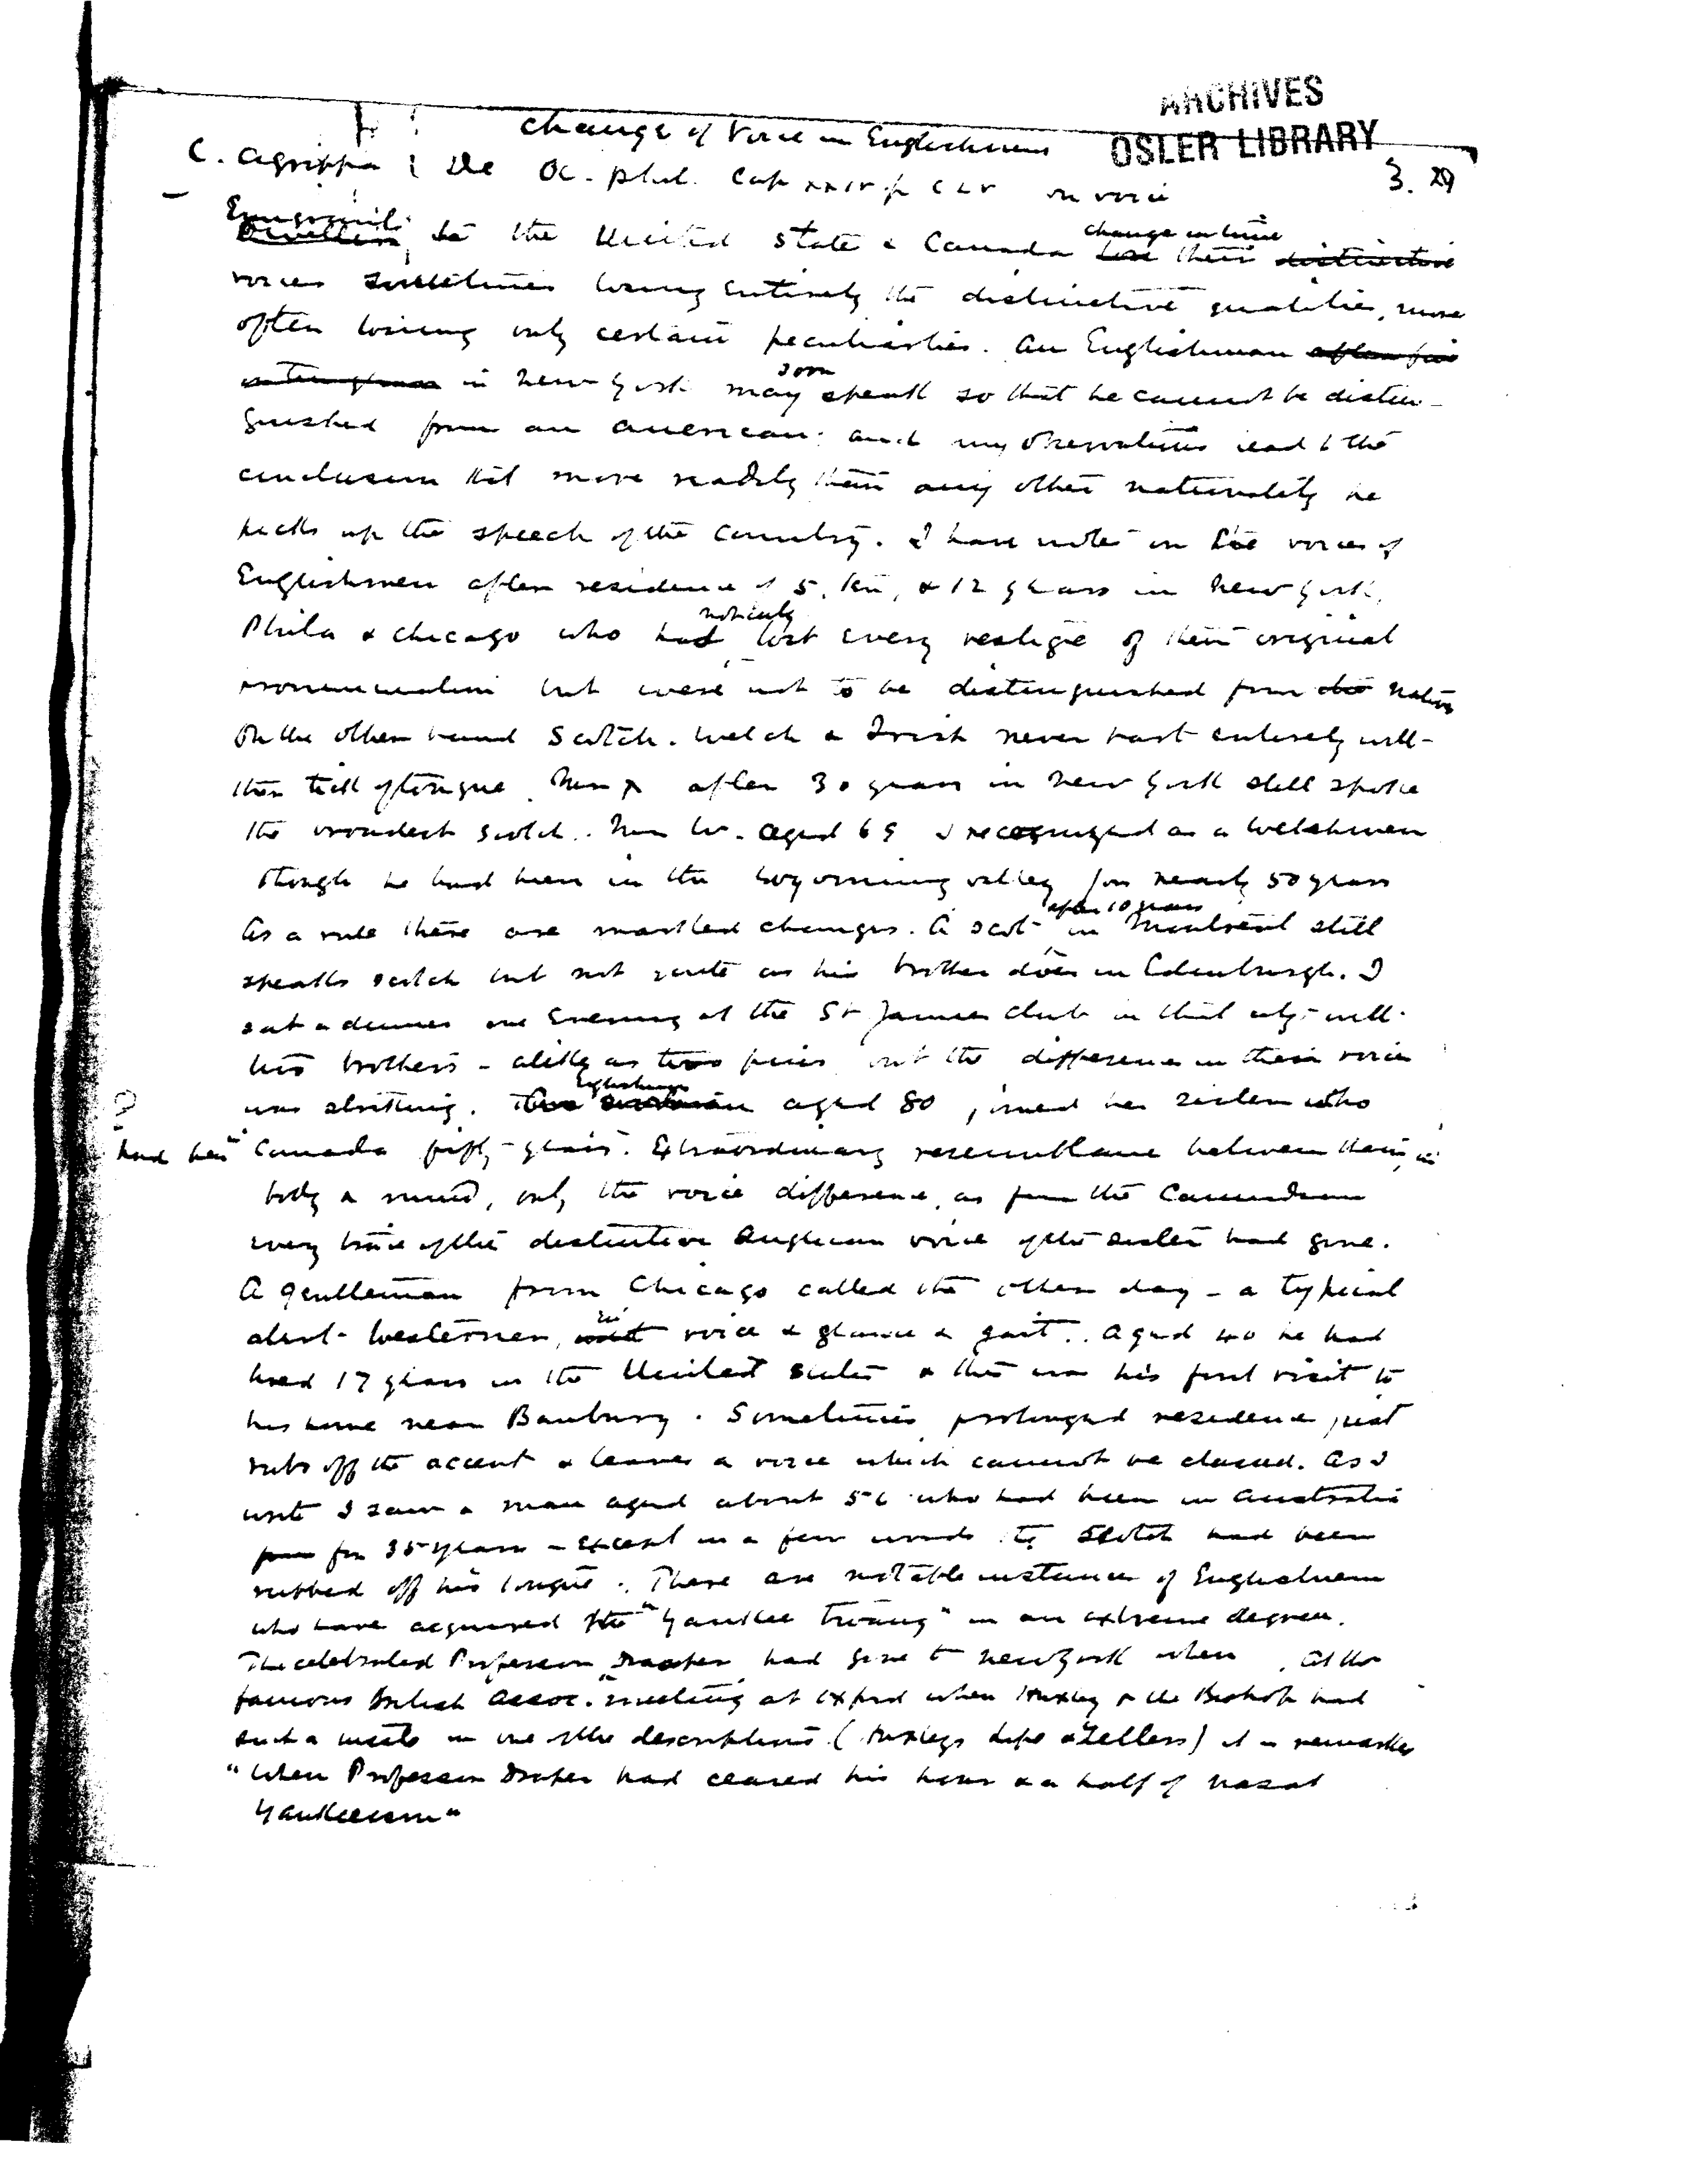 ARCHIVES
OSLER LIBRARY
Change of Voice in Englishmen
3. 29
C. Agrippa De Oc. Phil. Cap on voice
Emigrants to the United State & Canada change in time
lose their distinctive
voices sometimes losing entirely the distinctive qualities, more
often losing only certain peculiarities. An Englishman after few
in New York may soon speak so that he cannot be distin-
guished from an American: and my observations lead to the
conclusion that more readily than any other nationality he
picks up the speech of the country. I have note on the voices of
Englishmen after residence of 5, ten, & 12 years in New York,
Phila & Chicago who had not only lost every vestige of their original
pronunciation but were not to be distinguished from the natives
On the other hand Scotch, Welch & Irish never part entirely with
their trick of tongue. Mr X after 30 years in New York still spoke
the broadest Scotch. Mr W. aged 69 I recognized as a Welshman
though he had been in the Wyoming valley for nearly 50 years
As a rule there are marked changes. A Scot after 10 years in Montreal still
speaks Scotch but not quite as his brother does in Edenburgh. I
sat a dinner one evening at the St James Club in that city with
two brothers - alike as two peas but the difference in their voice
was striking. Englishman aged 80, joined her sister who
had been Canada fifty years. Extraordinary resemblance between them, in
body & mind, only the voice difference, as from the Canadian
every trace of the distinctive Anglican voice of the sister had gone.
A gentleman from Chicago called the other day - a typical
alert Westerner, in voice & glance & gait. Aged 40 he had
lived 17 years in the United States & this was his first visit to
his home near Banbury. Sometimes prolonged residence just
rubs off the accent & leaves a voice which cannot be classed. As I
write I saw a man aged about 56 who had been in Australia
for 35 years - except in a few words the Scotch had been
rubbed off his tongue. There are notable instances of Englishmen
who have acquired the "Yankee twang" in an extreme degree.
The celebrated Professor Draper had gone to New York when . At the
famous British Assoc. meeting at Oxford when Huxley & the Bishop had
such a in one of the descriptions (Huxleys Life & Letters) it is remarked
"When Professor Draper had ceased his hour & a half of nasal
Yankeeism"